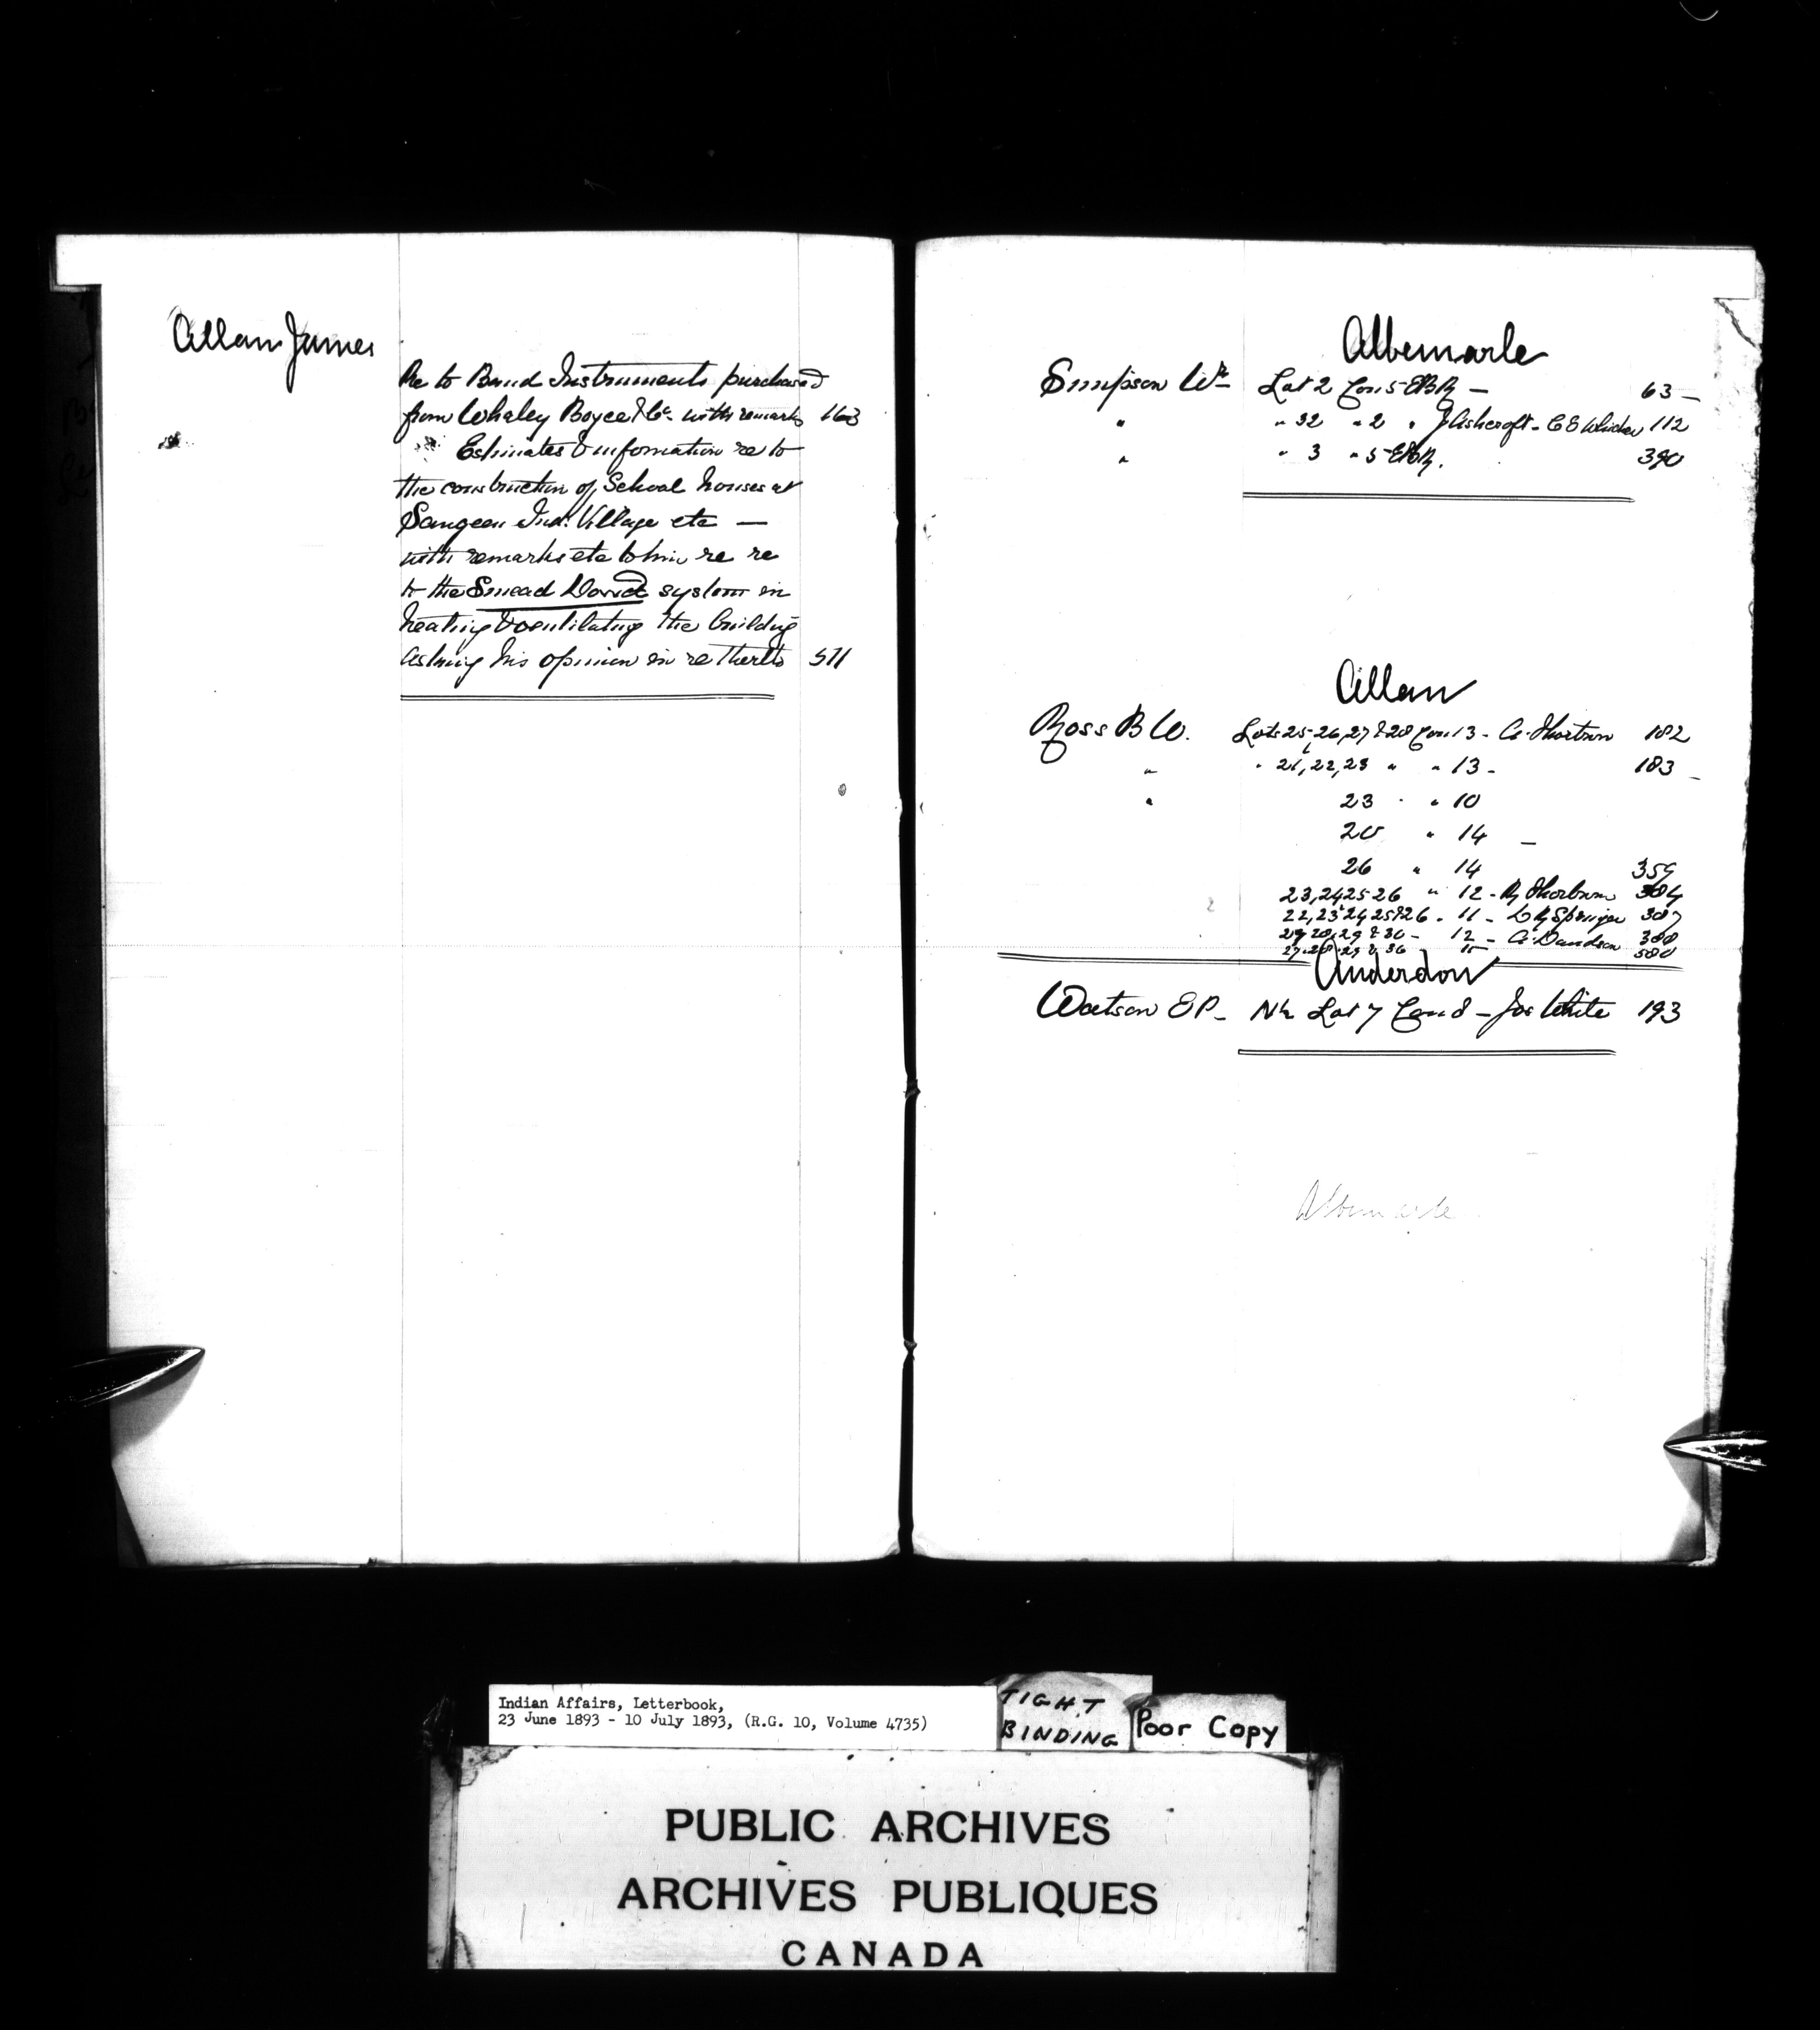 Allan James
Re to Band Instruments purchased
from Whaley Boyce & Co. with remarks 163
Estimates & information re to
the construction of School houses at
Saugeen Ind. Village etc —
with remarks etc to him re re
to the Smead Dowd system in
heating & ventilating the building
asking his opinion in re thereto 571
Albemarle
Simpson Wm Lot 2 Con 5 EBR — 63 —
" " 32 " 2 " J Ashcroft - C E Whicher 112
" " 3 " 5 EBR. 390
Allan
Ross B W. Lots 25, 26, 27 & 28 Con 13 - A. Thorburn 182
" " 21, 22, 23 " " 13 - 183 -
" 23 " " 10
20 " 14 -
26 " 14 359
23, 24 25 26 " 12 - R Thorburn 384
22, 23 24 25 & 26 " 11 - L R Springer 387
27 28, 29 & 30 - 12 - A Davidson 388
27, 28, 29 & 30 580
Anderdon
Watson E P - N½ Lot 7 Con 8 - Jos White 193
Albemarle
Indian Affairs, Letterbook,
23 June 1893 - 10 July 1893, (R.G. 10, Volume 4735)
TIGHT
BINDING
Poor Copy
PUBLIC ARCHIVES
ARCHIVES PUBLIQUES
CANADA